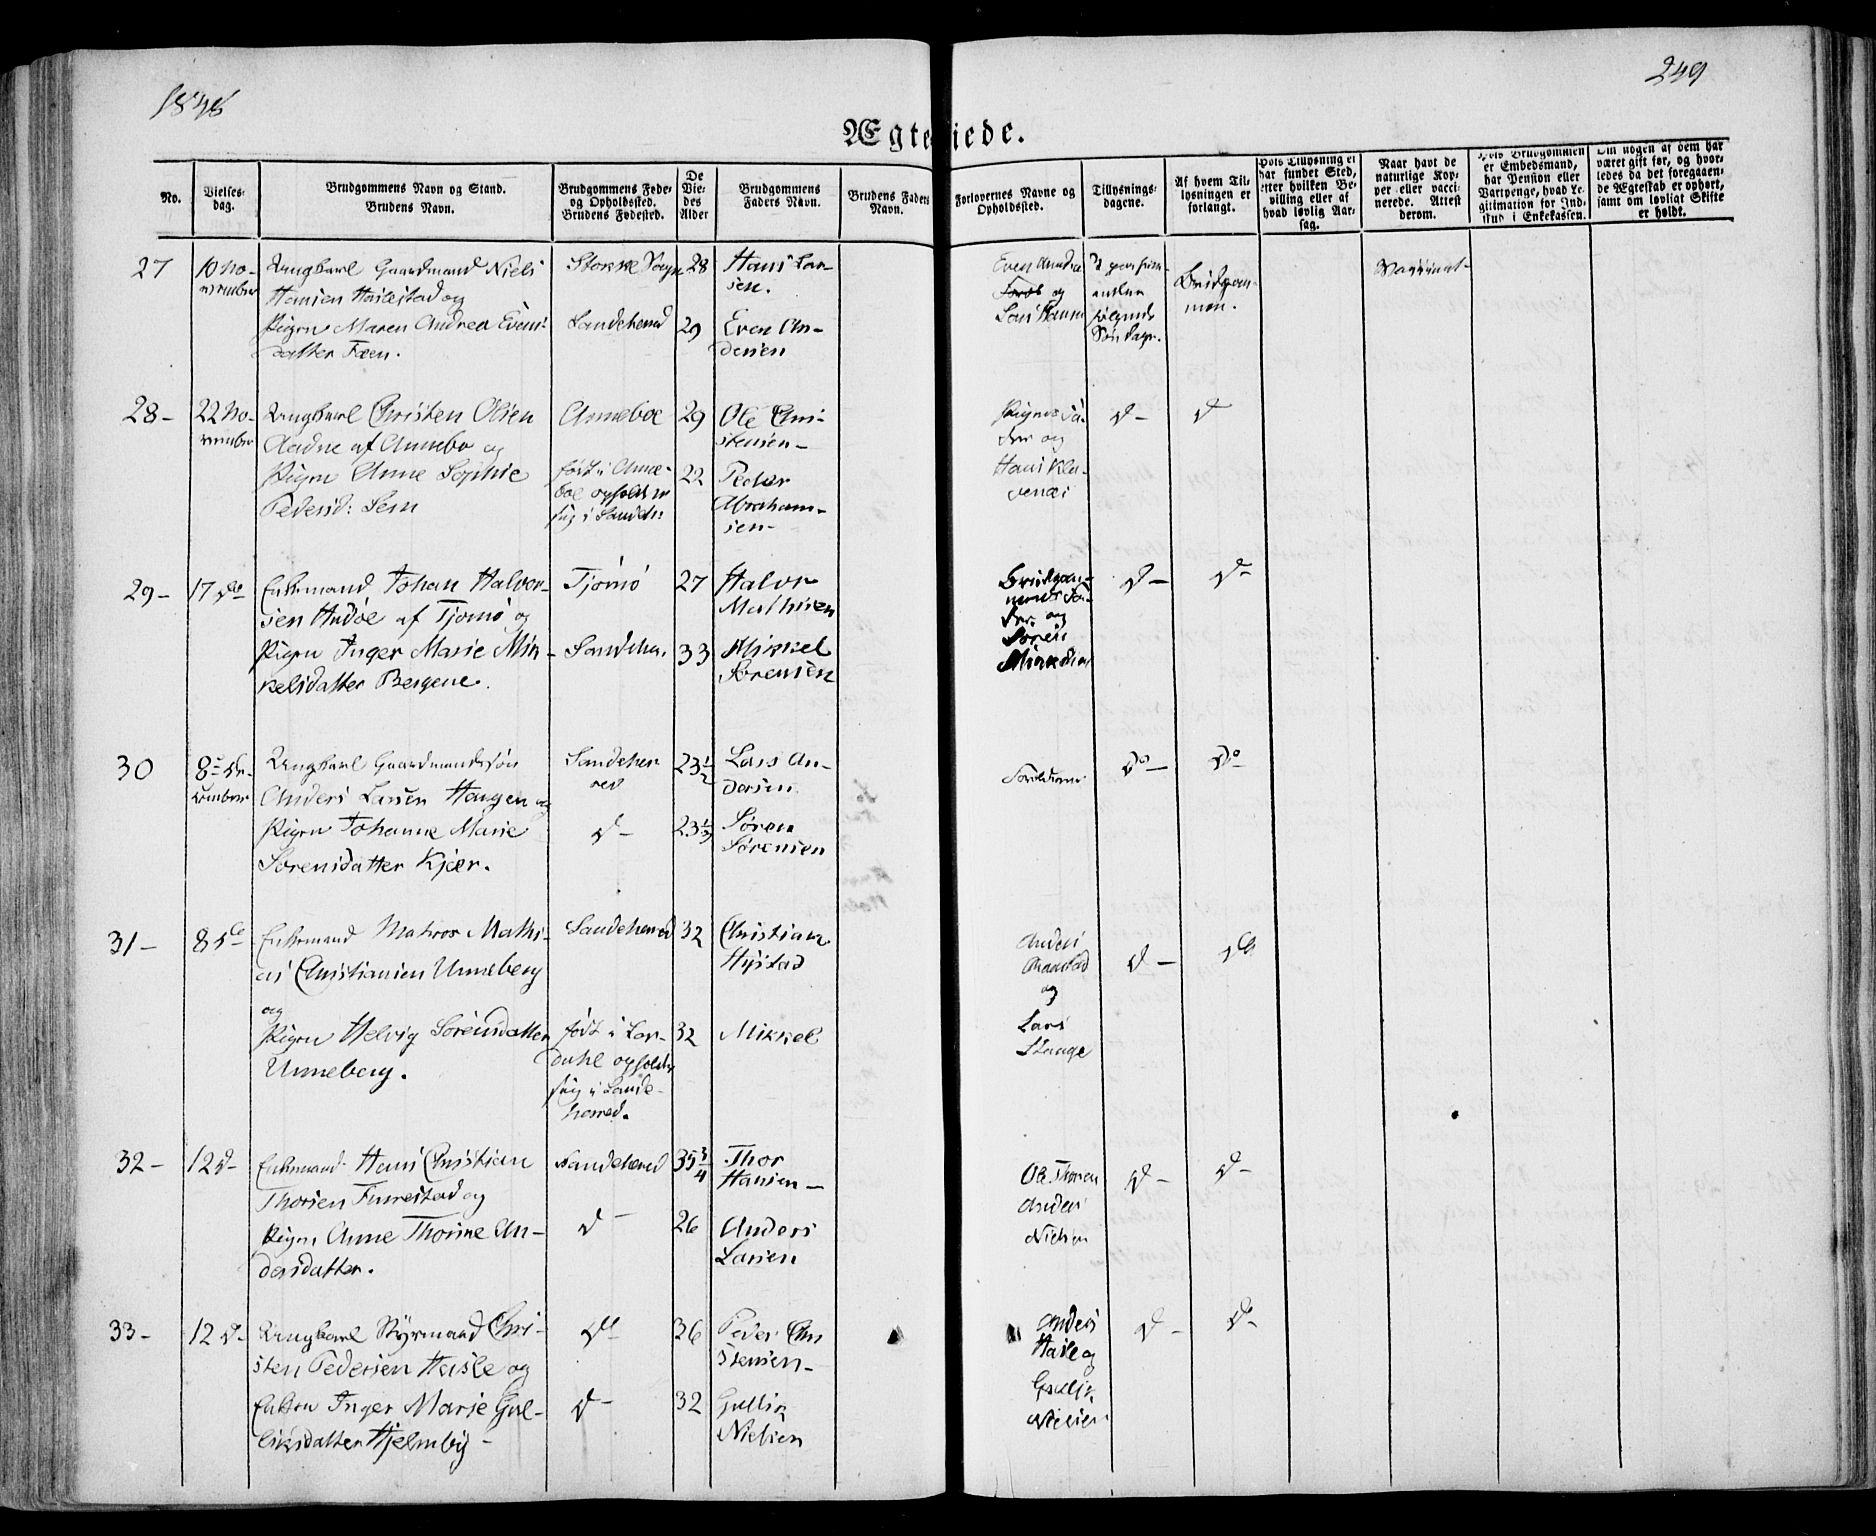 1848
249
Ægteviede.
No.
Vielses-
dag.
Brudgommens Navn og Stand.
Brudens Navn.
Brudgommens Føde-
og Opholdssted.
Brudens Fødested.
De
Vie-
des
Alder
Brudgommens
Faders Navn.
Brudens Faders
Navn.
Forlovernes Navne og
Opholdssted.
Tillysnings-
dagene.
Af hvem Til-
lysningen er
forlangt.
Hvis Tillysning ei
har fundet Sted,
efter hvilken Be-
villing eller af
hvad lovlig Aar-
sag.
Naar havt de
naturlige Kop-
per eller vacci-
nerede. Attest
derom.
Hvis Brudgommen
er Embedsmand,
har Pension eller
Vartpenge, hvad Le-
gitimation for Ind-
skud i Enkekassen.
Om nogen af dem har
været gift før, og hvor-
ledes da det foregaaen-
de Ægteskab er ophørt,
samt om lovligt Skifte
er holdt.
27
10 No-
vember
Ungkarl Gaardmand Niels
Hansen Haslestad og
Pigen Maren Andrea Evens
datter Fæen.
Stokke Sogn
Sandeherred
28
29
Hans Lar-
sen.
Even An-
dersen
og
Lars Hansen
følgende
Søndage.
Brudgom-
men.
28-
22 No-
vember
Ungkarl Christen Olsen
Aadne af Annebo og
Pigen Anne Sophie
Pedersd: Sem
Anneboe
født i Anne-
boe opholder
sig i Sandeh:
29
22
Ole Chri-
stensen-
Peder
Abraham-
sen-
Pigens Fa-
der og
Hans Kla-
venæs
d-
d
29-
17 do
Enkemand Johan Halvor-
sen Hudøe af Tjømø og
Pigen Inger Marie Mik-
kelsdatter Bergene.
Tjømø
Sandeher.
27
33
Halvor
Mathisen
Mikkel
Sørensen
Brudgom-
mens Fa-
der og
Søren
Mikkelsen
d-
d-
30
8 de-
cember
Ungkarl Gaardmandssøn
Anders Larsen Haugen og
Pigen Johanne Marie
Sørensdatter Kjær.
Sandeher
red
d-
23½
23⅓
Lars An-
dersen
Søren
Sørensen
Forældrene
do-
do
31-
8 do
Enkemand Matros Mathi-
as Christiansen Unneberg
og
Pigen Helvig Sørensdatter
Unneberg.
Sandeherred
født i Lar-
dahl opholder
sig i Sande-
herred.
32
32
Christian
Hystad
Mikkel
Anders
og
Lars
Stange
d-
do
32-
12 d-
Enkemand Hans Christian
Thorsen Furrestad og
Pigen Anne Thorine An-
dersdatter.
Sandeherred
d-
35¾
26
Thor
Hansen-
Anders
Larsen
Ole Thorsen
Anders
Nielsen
d-
d-
33-
12 d-
Ungkarl Styrmand Chri-
sten Pedersen Hasle og
Enken Inger Marie Gul-
liksdatter Hjelmby-
do
d-
36
32
Peder Chri
stensen-
Gullik
Nielsen
Anders
Hasle og
Gullik
Nielsen
d-
do-